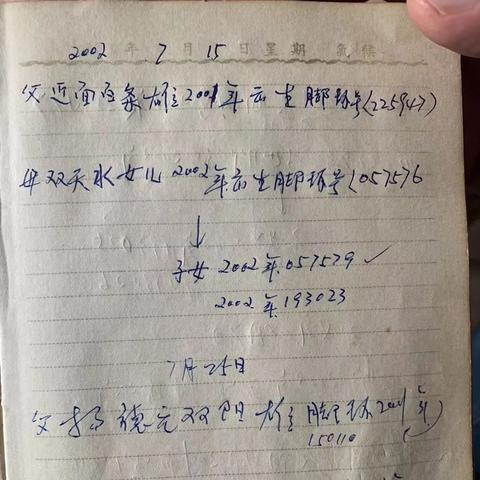 2002 年 7 月 15 日 星期 气候
父近面白条雄 2001年出生脚环号(225947)
母双天水女儿 2002年出生脚环号(057576
↓
子女 2002年.057579 ✓
2002年.193023
7月25日
父 杨德元双阳雄 脚环 2001年)
150110